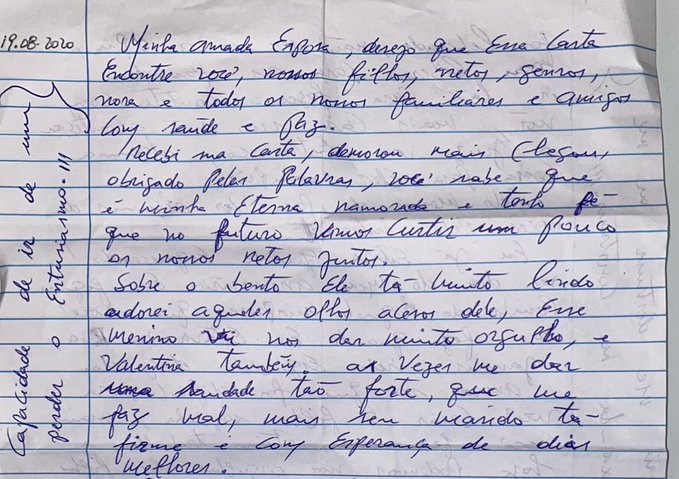 19.08.2020
Minha amada Esposa, desejo que Essa Carta
Encontre você, nossos filhos, netos, genros,
nora e todos os nossos familiares e amigos
com saúde e paz.
Recebi sua Carta, demorou mais Chegou,
obrigado pelas Palavras, você sabe que
é minha Eterna namorada e tenho fé
que no futuro vamos Curtir um pouco
os nossos netos juntos.
Sobre o bento Ele tá muito lindo
adorei aqueles olhos acesos dele, Esse
menino vai nos dar muito orgulho, e
Valentina também. as vezes me dar
uma saudade tão forte, que me
faz mal, mais seu marido tá
firme e com Esperança de dias
melhores.
Capacidade de ir de um
perder o Entusiasmo.!!!